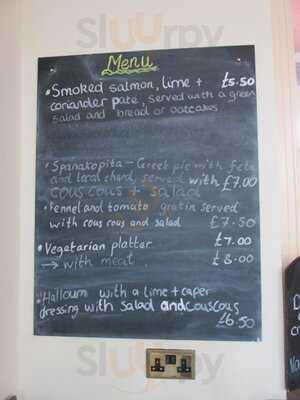 Sluurpy
Menu
• Smoked salmon, lime + £5.50
coriander pate, served with a green
salad and bread or oatcakes
• Spanakopita - Greek pie with feta
and local chard, served with £7.00
cous cous + salad
• Fennel and tomato gratin served
with cous cous and salad £7.50
• Vegetarian platter £7.00
→ with meat £8.00
• Halloumi with a lime + caper
dressing with salad and couscous
£6.50
Sluurpy